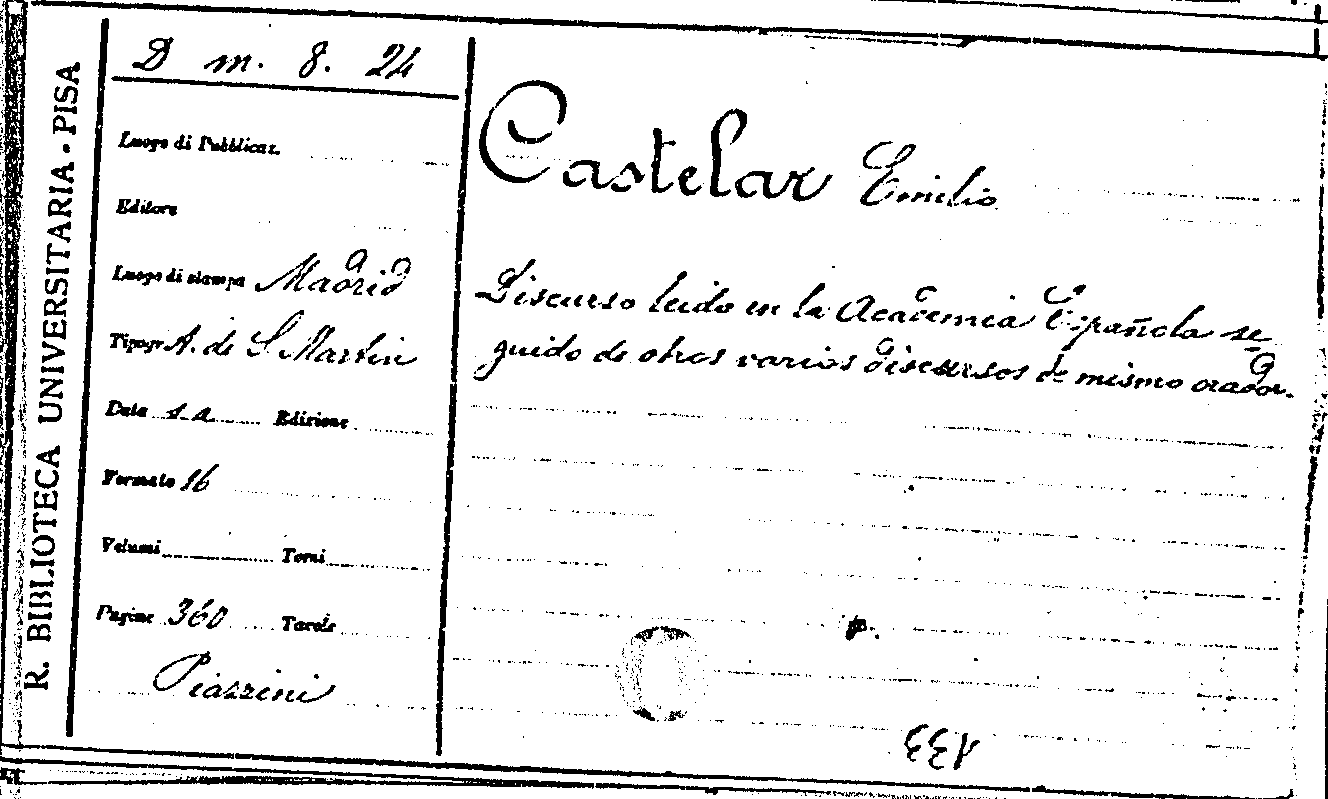 R. BIBLIOTECA UNIVERSITARIA - PISA
D m. 8. 24
Luogo di Pubblicaz.
Editore
Luogo di stampa Madrid
Tipogr A. de S. Martin
Data s. a. Edizione
Formato 16
Volumi Tomi
Pagine 360 Tavole
Piazzini
Castelar Emilio
Discurso leido en la Academia Española se-
guido de otros varios discursos de mismo orador.
p.
133